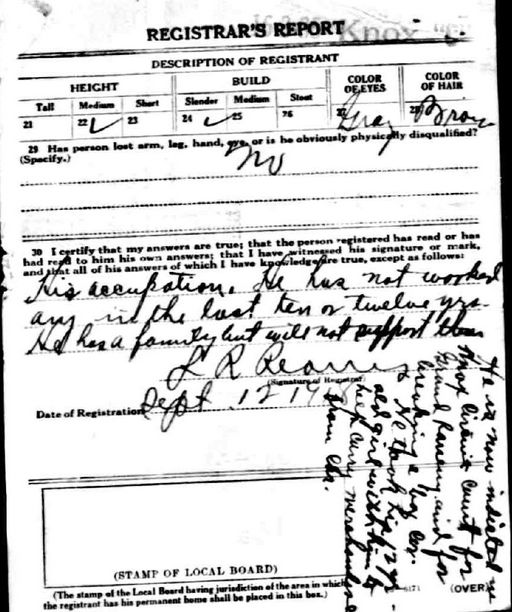 REGISTRAR'S REPORT
Knox
DESCRIPTION OF REGISTRANT
HEIGHT BUILD COLOR OF EYES COLOR OF HAIR
Tall Medium Short Slender Medium Stout
21 22 ✓ 23 24 ✓ 25 26 27 Gray 28 Brown
29 Has person lost arm, leg, hand, eye, or is he obviously physically disqualified?
(Specify.) No
30 I certify that my answers are true; that the person registered has read or has
had read to him his own answers; that I have witnessed his signature or mark,
and that all of his answers of which I have knowledge are true, except as follows:
His accupation. He has not worked
any in the last ten or twelve yrs.
He has a family but will not support them
L R
(Signature of Registrar)
Date of Registration Sept. 12 1918
He is now indicted in
Knox Circuit Court for
Grand Larceny and for
breaking a box Car.
& He took his 12 yr
old girl with him to
help carry merchandise
from Car.
(STAMP OF LOCAL BOARD)
(The stamp of the Local Board having jurisdiction of the area in which
the registrant has his permanent home shall be placed in this box.)
6171 (OVER)